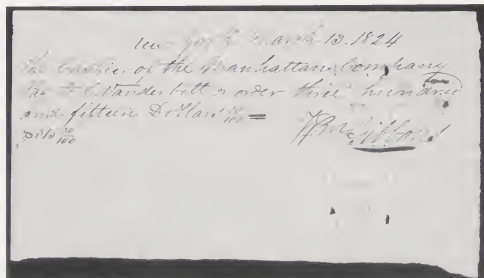 New York March 13. 1824
The Cashier of the Manhattan Company
Pay to C. Vanderbilt or order three hundred
and fifteen Dollars 50/100 =
Gibbons